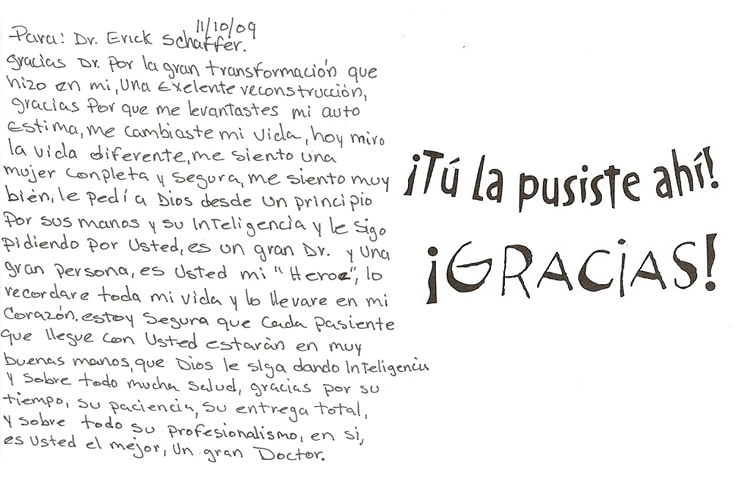 11/10/09
Para: Dr. Erick Schaffer.
Gracias Dr. Por la gran transformación que
hizo en mi, una Exelente reconstrucción,
gracias Por que me levantastes mi auto
Estima, me cambiaste mi vida, hoy miro
la vida diferente, me siento una
mujer conpleta y segura, me siento muy
bién, le pedí a Dios desde un principio
Por sus manos y su Inteligencia y le sigo
pidiendo por Usted, es un gran Dr. y una
gran persona, es Usted mi "Heroe", lo
recordare toda mi vida y lo llevare en mi
Corazón, estoy segura que cada pasiente
que llegue con Usted estarán en muy
buenas manos, que Dios le siga dando Inteligencia
y sobre todo mucha salud, gracias por su
tiempo, su paciencia, su entrega total,
y sobre todo su profesionalismo, en si,
es Usted el mejor, Un gran Doctor.
¡Tú la pusiste ahí!
¡GRACIAS!